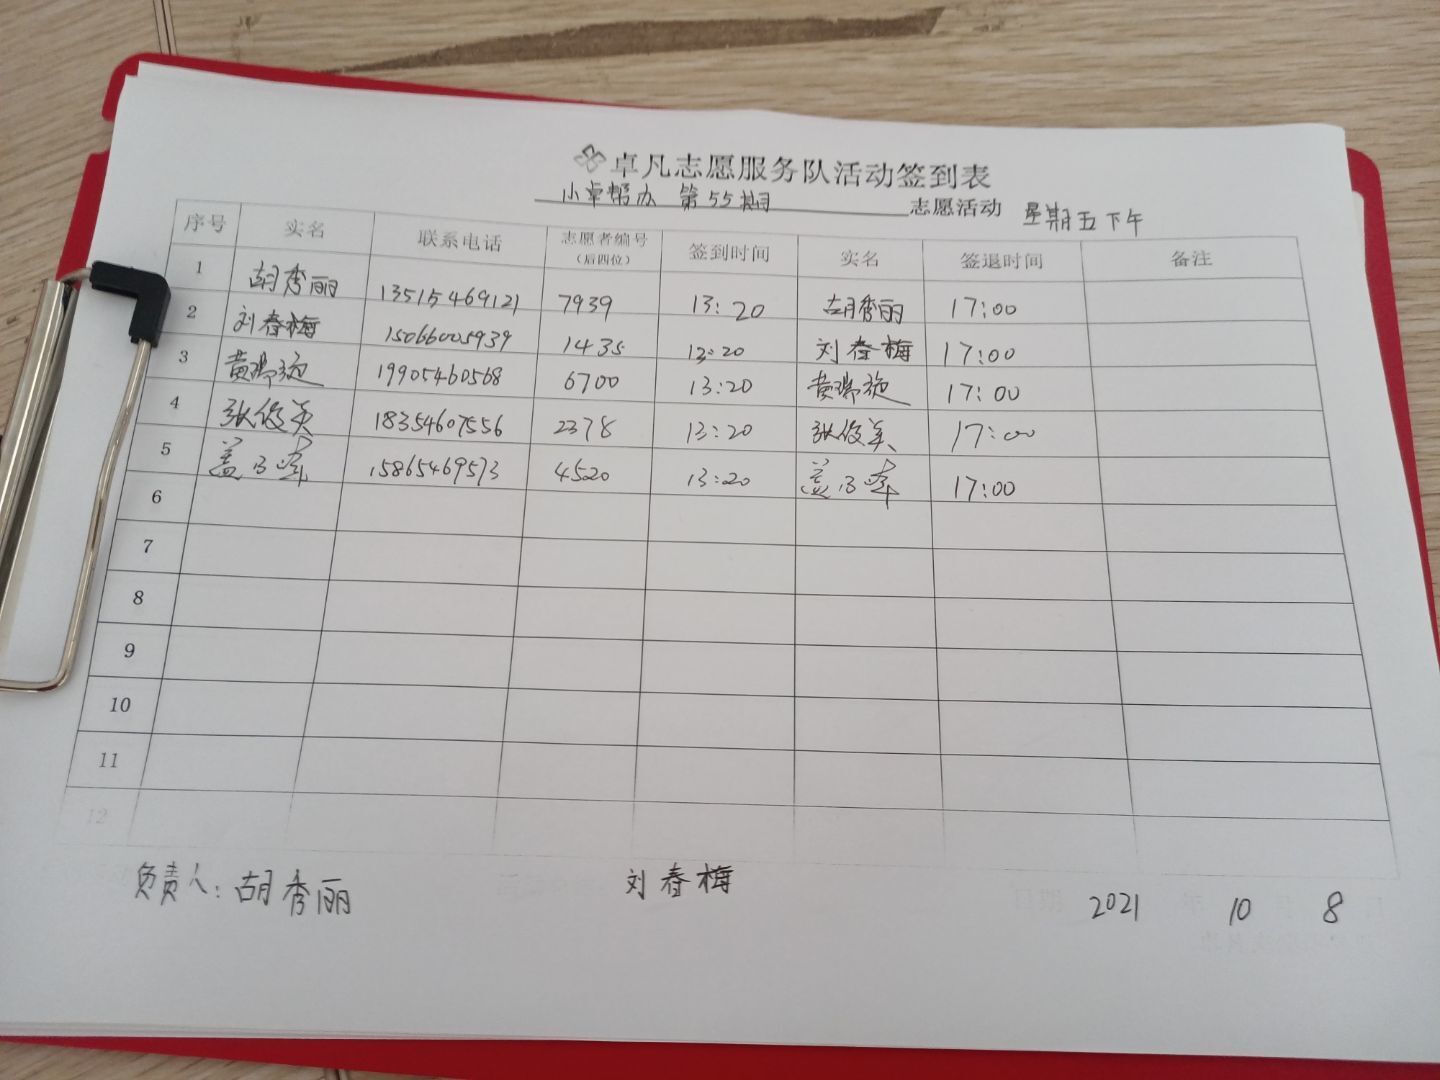 卓凡志愿服务队活动签到表
小卓帮办 第55期 志愿活动 星期五下午
序号 实名 联系电话 志愿者编号（后四位） 签到时间 实名 签退时间 备注
1 胡秀丽 13515469121 7939 13:20 胡秀丽 17:00
2 刘春梅 15066005939 1435 13:20 刘春梅 17:00
3 黄瑞旋 19905460568 6700 13:20 黄瑞旋 17:00
4 张俊英 18354607556 2378 13:20 张俊英 17:00
5 盖 15865469573 4520 13:20 盖 17:00
6
7
8
9
10
11
12
负责人：胡秀丽 刘春梅 2021 年 10 月 8 日